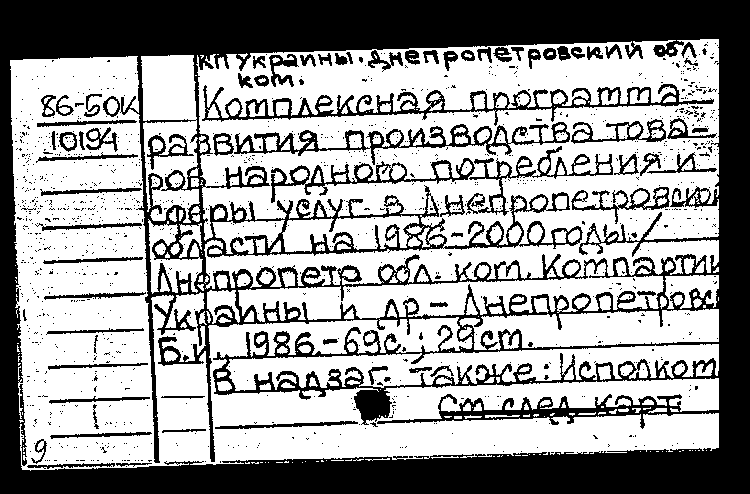 КП Украины. Днепропетровский обл.
ком.
86-50К Комплексная программа
10194 развития производства това-
ров народного потребления и
сферы услуг в Днепропетровской
области на 1986-2000 годы. /
Днепропетр обл. ком. Компартии
Украины и др. - Днепропетровск
Б.и., 1986.-69с.; 29см.
В надзаг. также: Исполком
См след карт
9